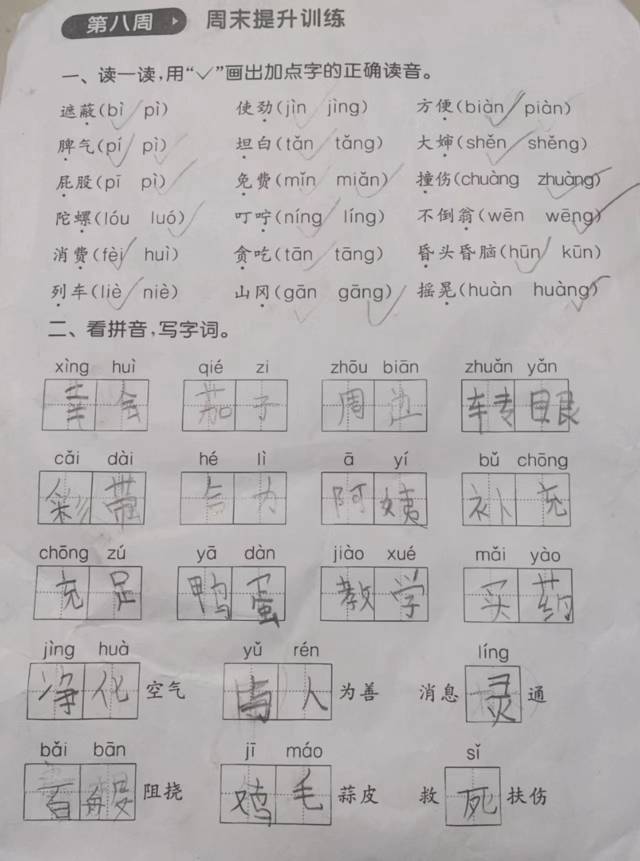 第八周 周末提升训练
一、读一读,用“✓”画出加点字的正确读音。
遮蔽(bì pì) 使劲(jìn jìng) 方便(biàn piàn)
脾气(pí pì) 坦白(tǎn tǎng) 大婶(shěn shěng)
屁股(pī pì) 免费(mǐn miǎn) 撞伤(chuàng zhuàng)
陀螺(lóu luó) 叮咛(níng líng) 不倒翁(wēn wēng)
消费(fèi huì) 贪吃(tān tāng) 昏头昏脑(hūn kūn)
列车(liè niè) 山冈(gān gāng) 摇晃(huàn huàng)
二、看拼音,写字词。
xìng huì qié zi zhōu biān zhuǎn yǎn
会 茄子 周边 转眼
cǎi dài hé lì ā yí bǔ chōng
彩带 合力 阿姨 补充
chōng zú yā dàn jiào xué mǎi yào
充足 鸭蛋 教学 买药
jìng huà yǔ rén líng
净化 空气 人 为善 消息 灵 通
bǎi bān jī máo sǐ
百般 阻挠 鸡毛 蒜皮 救 死 扶伤